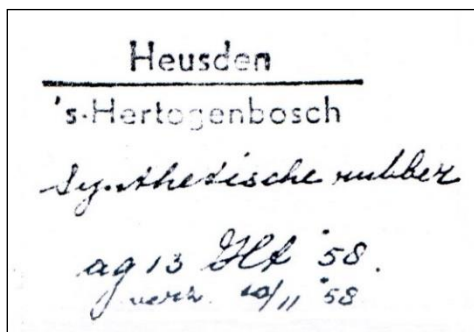 Heusden
's-Hertogenbosch
Synthetische rubber
ag 13 Okt '58.
verz. 10/11 '58